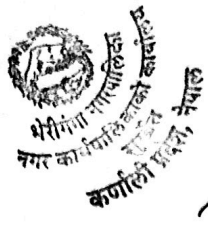 भेरीगंगा नगरपालिका
नगर कार्यपालिकाको कार्यालय
सुर्खेत
कर्णाली प्रदेश, नेपाल